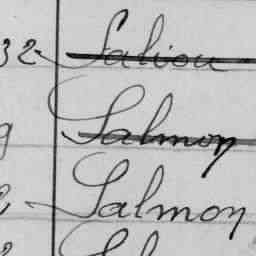 32 Saliou
Salmon
Salmon